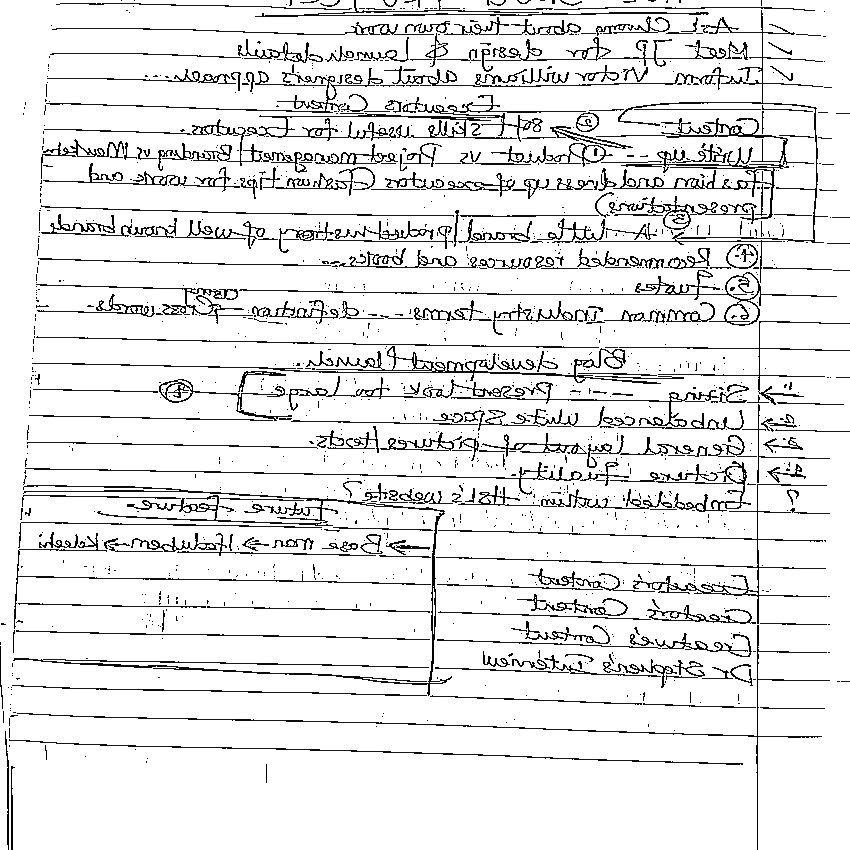 ✓ Ask Chioma about their own work
✓ Meet JP for design & launch details
✓ Inform Victor Williams about designer's approach....
Executors Content
Content ② Soft skills useful for Executors.
Write up --- ① Product vs Project management | Branding vs Marketing
fashion and dress up of executors (fashion tips for work and
presentations)
③ A little brand/product history of well known brands
④ Recommended resources and books --
⑤ Quotes
⑥ Common industry terms --- definition using Crosswords.
Blog development flaunch.
1→ Sizing ---- Present look too large ④
2→ Unbalanced White Space
3→ General layout of pictures/texts.
4→ Picture Quality.
? Embedded within HSL's website?
Future feature
→ Base man → Ifeduben → Kelechi
Executor's Content
Creator's Content
Creative's Content
Dr Stephen's Interview